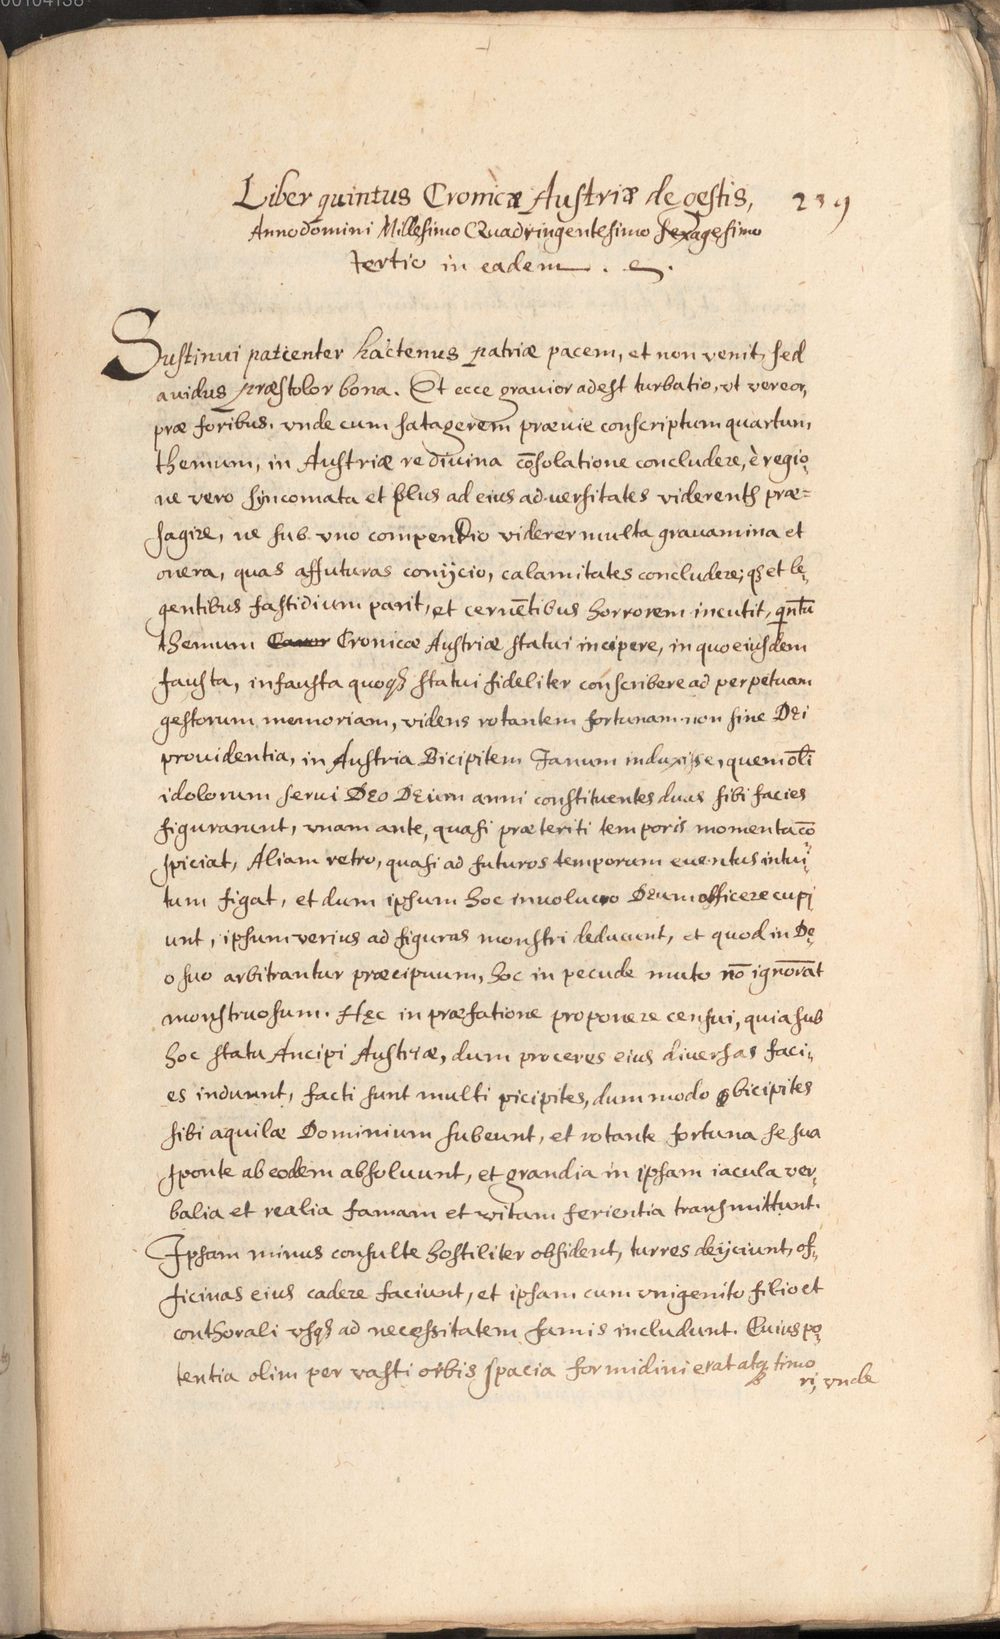 00104138
Liber quintus Cronicæ Austriæ de gestis, 239
Anno dōmini Millesimo Quadringentesimo sexagesimo
tertio in eadem
Sustinui patienter hactenus patriæ pacem, et non venit, sed
auidus præstolor bona. Et ecce grauior adest turbatio, vt vereor,
præ foribus. vnde cum satagerem præuie conscriptum quartun,
thernum, in Austriæ re diuina cōsolatione concludere, è regio,
ne vero syncomata et plus ad eius aduersitates viderent præ=
sagire, ne sub vno compendio viderer multa grauamina et
onera, quas affuturas conijcio, calamitates concludere; qȝ et le,
gentibus fastidium parit, et cernētibus horrorem incutit, qntū
thernum Cronicæ Austriæ statui incipere, in quo eiusdem
fausta, infausta quoqȝ statui fideliter conscribere ad perpetuam
gestorum memoriam, videns rotantem fortunam non sine Dei
prouidentia, in Austria Bicipitem Janum induxisse, quem oli
idolorum serui Deo Deum anni constituentes duas sibi facies
figurarunt, vnam ante, quasi præteriti temporis momenta cō
spiciat, Aliam retro, quasi ad futuros temporum euentus intui,
tum figat, et dum ipsum hoc inuolucro Deum efficere cupi
unt, ipsum verius ad figuras monstri deducunt, et quod in De,
o suo arbitrantur præcipuum, hoc in pecude muto nō ignorāt
monstruosum. Hęc in præfatione proponere censui, quia sub
hoc statu Ancipi Austriæ, dum proceres eius diuersas faci,
es induunt, facti sunt multi picipites, dum modo bicipites
sibi aquilæ Dominium subeunt, et rotante fortuna se sua
sponte ab eodem absoluunt, et grandia in ipsam iacula ver,
balia et realia famam et vitam ferientia transmittunt.
Ipsam minus consulte hostiliter obsident, turres deijciunt, of,
ficinas eius cadere faciunt, et ipsam cum vnigenito filio et
conthorali vsqȝ ad necessitatem famis includunt. Cuius po,
tentia olim per vasti orbis spacia formidini erat atqȝ timo
ri, vnde